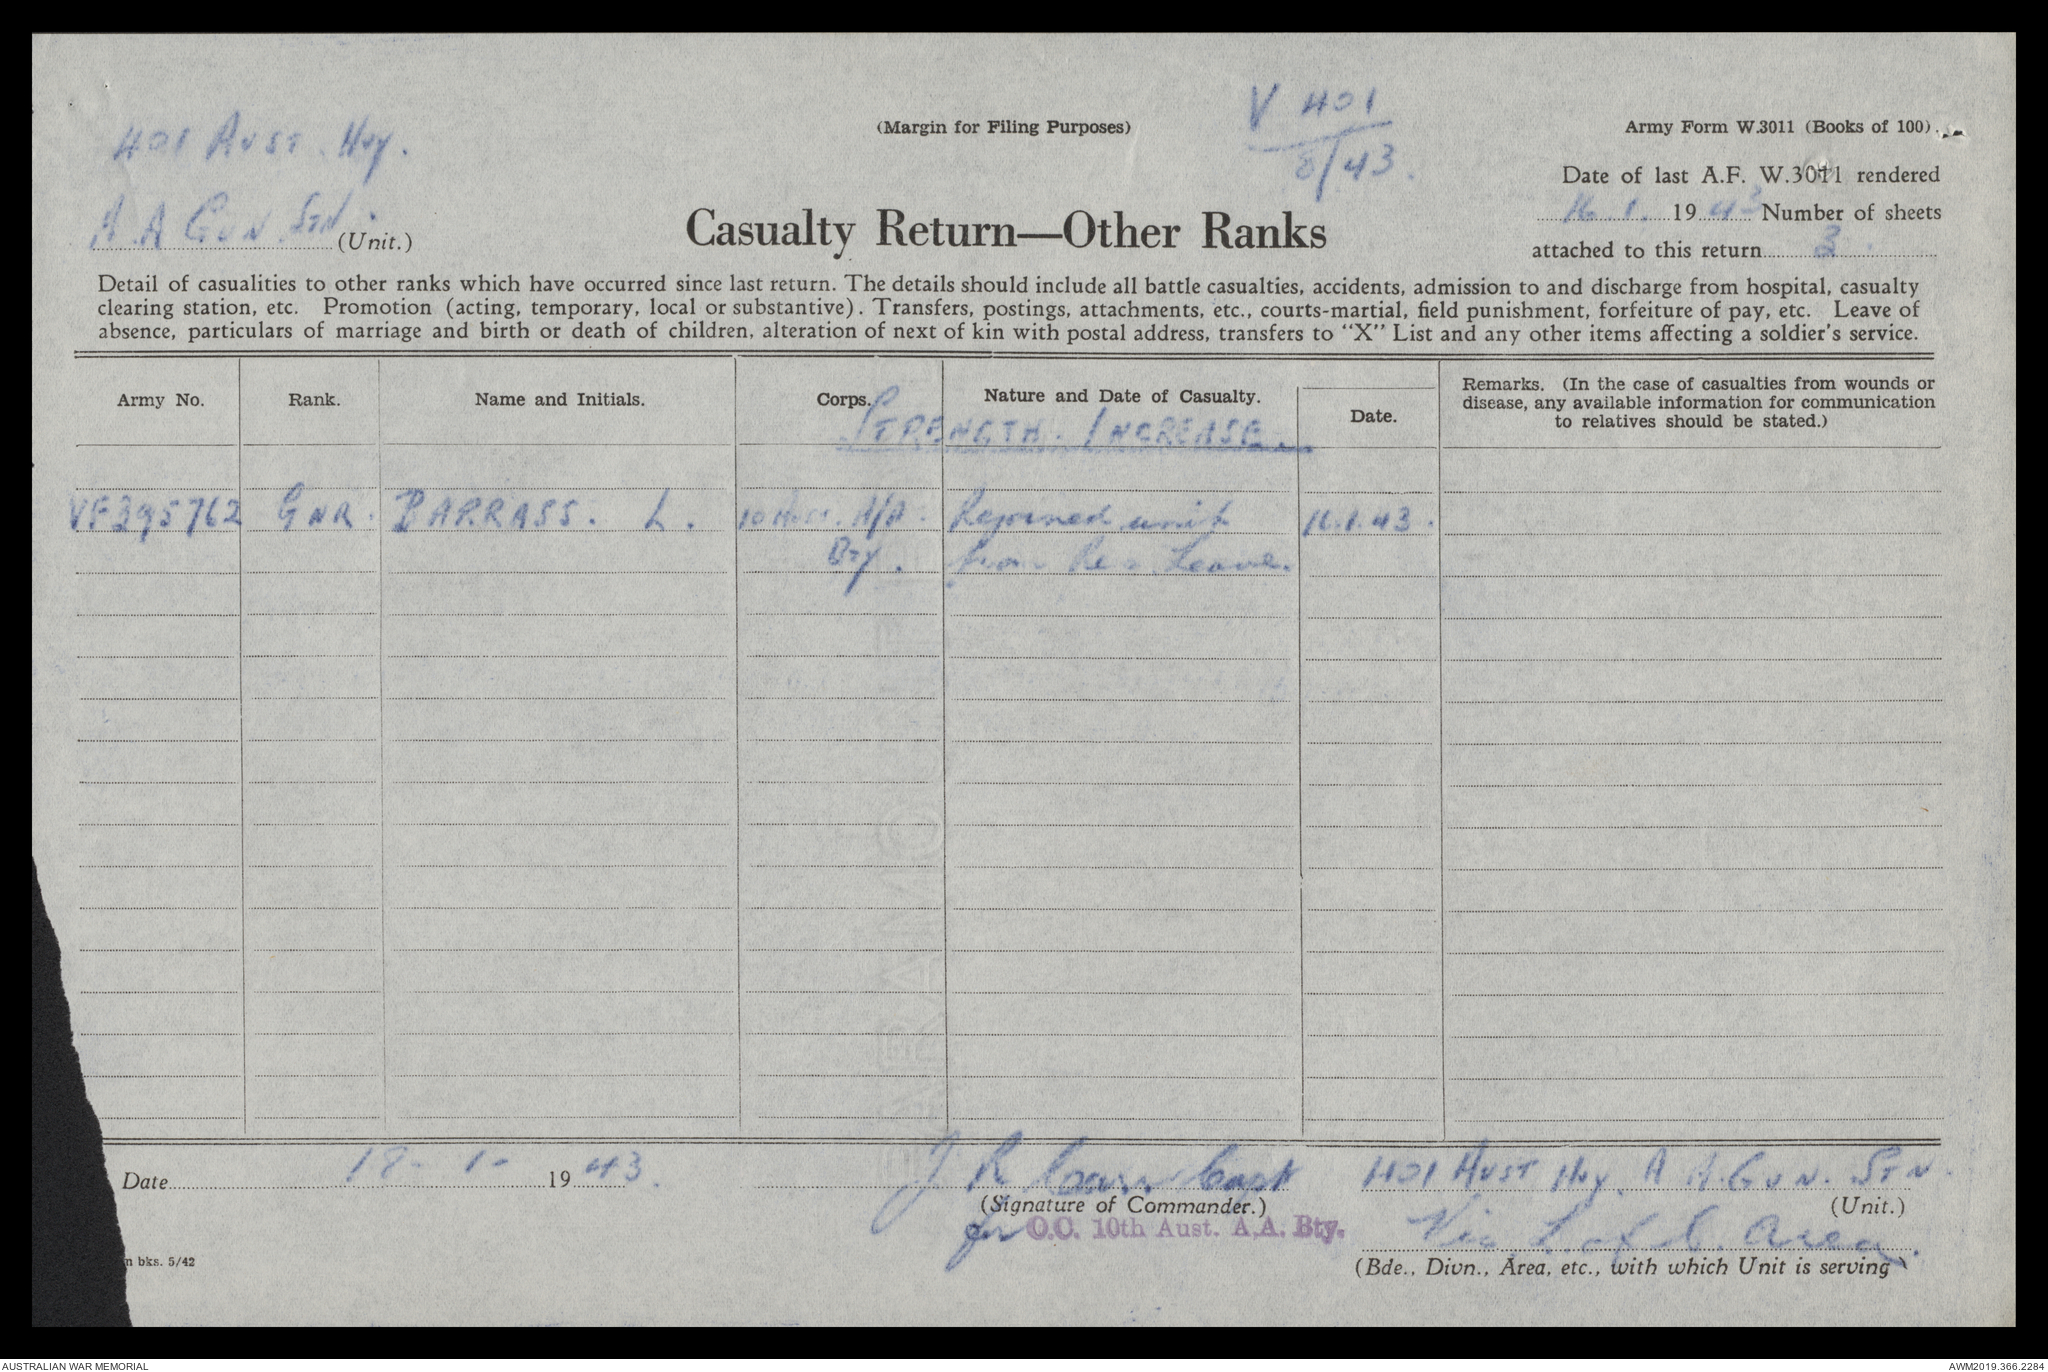 401 AUST. Hvy.
A.A GUN. STN.
(Unit.)
(Margin for Filing Purposes)
V 401
8/43.
Army Form W.3011 (Books of 100).
Date of last A.F. W.3011 rendered
16.1. 1943 Number of sheets
attached to this return 3.
Casualty Return—Other Ranks
Detail of casualities to other ranks which have occurred since last return. The details should include all battle casualties, accidents, admission to and discharge from hospital, casualty
clearing station, etc. Promotion (acting, temporary, local or substantive). Transfers, postings, attachments, etc., courts-martial, field punishment, forfeiture of pay, etc. Leave of
absence, particulars of marriage and birth or death of children, alteration of next of kin with postal address, transfers to "X" List and any other items affecting a soldier's service.
Army No. Rank. Name and Initials. Corps. Nature and Date of Casualty. Date. Remarks. (In the case of casualties from wounds or
disease, any available information for communication
to relatives should be stated.)
STRENGTH. INCREASE.
VF395762 GNR. BARRASS. L. 10 Aust. A/A. Rejoined unit 16.1.43.
Bty. from Rec Leave.
Date 18-1-1943.
J R Capt
(Signature of Commander.)
for O.C. 10th Aust. A.A. Bty.
401 AUST Hvy. A A. GUN. STN.
(Unit.)
Vic L of C. Area.
(Bde., Divn., Area, etc., with which Unit is serving)
n bks. 5/42
AUSTRALIAN WAR MEMORIAL
AWM2019.366.2284